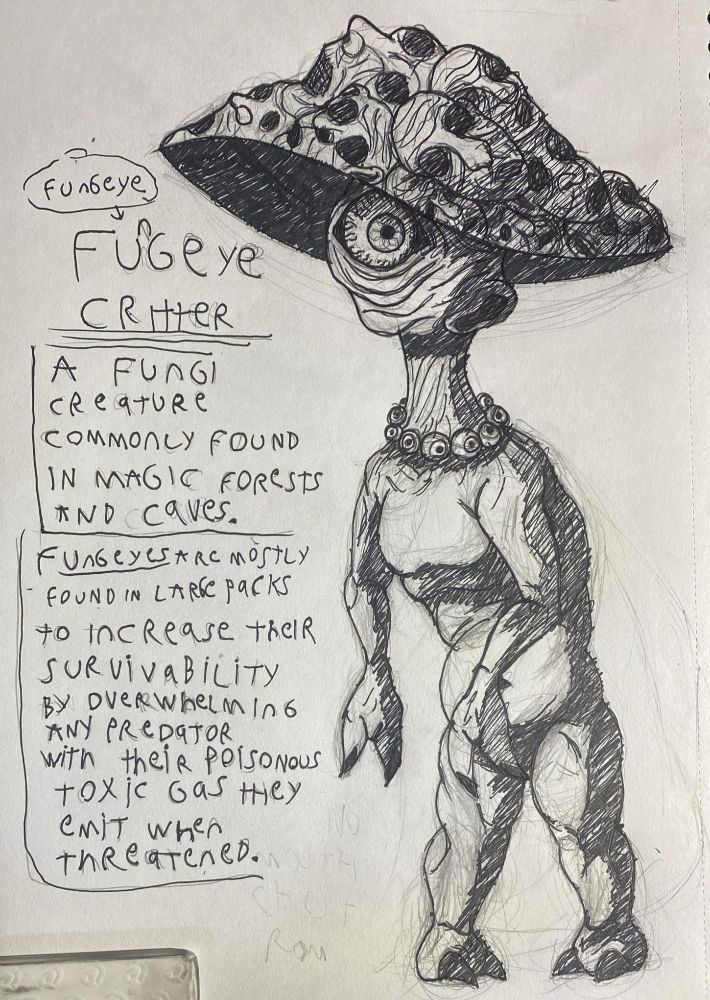 Fungeye
FUGeye
CRitteR
A FUNGI
CReATURe
COMMONLY FOUND
IN MAGIC FORESTS
AND CAVes.
FUNGeYes ARe MOSTLY
FOUND IN LARGE PACKS
to INCReASe theiR
SURViVABILITY
BY OVeRWHeLMING
ANY PREDATOR
with their POISONOUS
TOXiC GAS they
emit when
thReAteNeD.